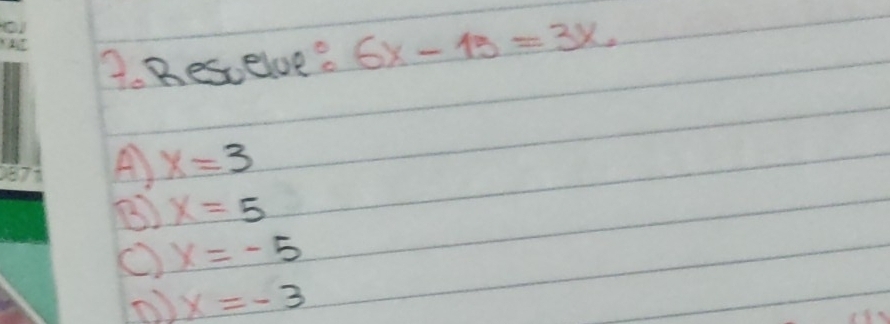 7. Resuelve: 6x - 15 = 3x.
A) x = 3
B) x = 5
C) x = -5
D) x = -3